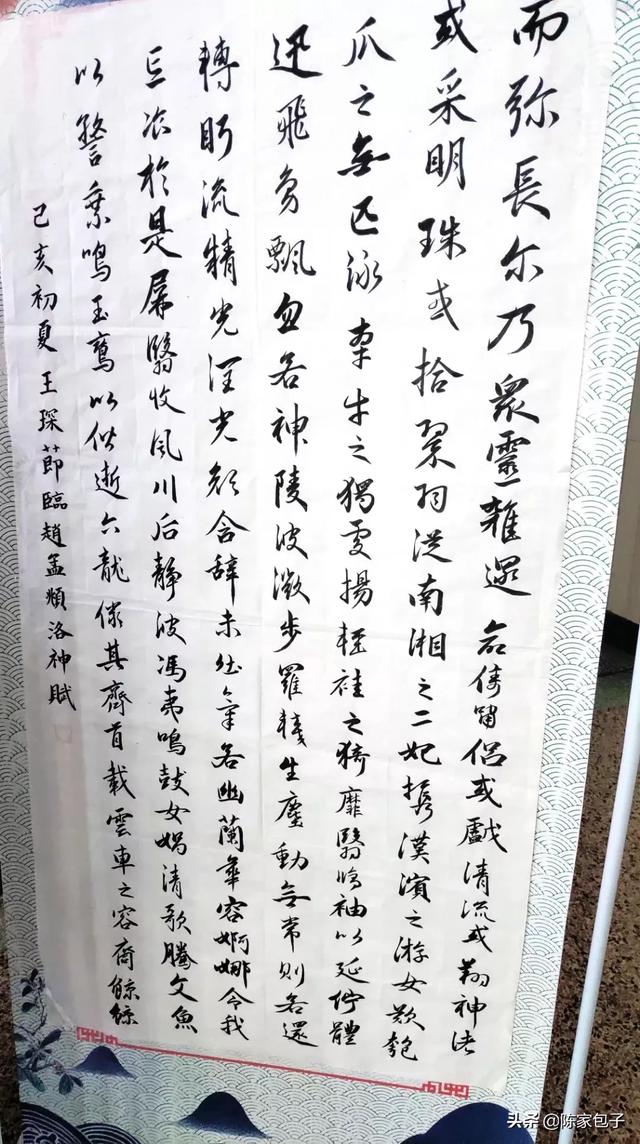 而弥長尔乃衆靈雜遝命儔嘯侣或戲清流或翔神渚
或采明珠或拾翠羽從南湘之二妃攜漢濱之游女歎匏
瓜之無匹詠牽牛之獨處揚輕袿之猗靡翳脩袖以延佇體
迅飛鳧飄忽若神陵波微步羅襪生塵動無常則若還
轉眄流精光潤顔含辭未吐氣若幽蘭華容婀娜令我
忘飡於是屏翳收風川后靜波馮夷鳴鼓女媧清歌騰文魚
以警乘鳴玉鸞以偕逝六龍儼其齊首載雲車之容裔鯨鯨
己亥初夏王琛節臨趙孟頫洛神賦
头条 @陈家包子